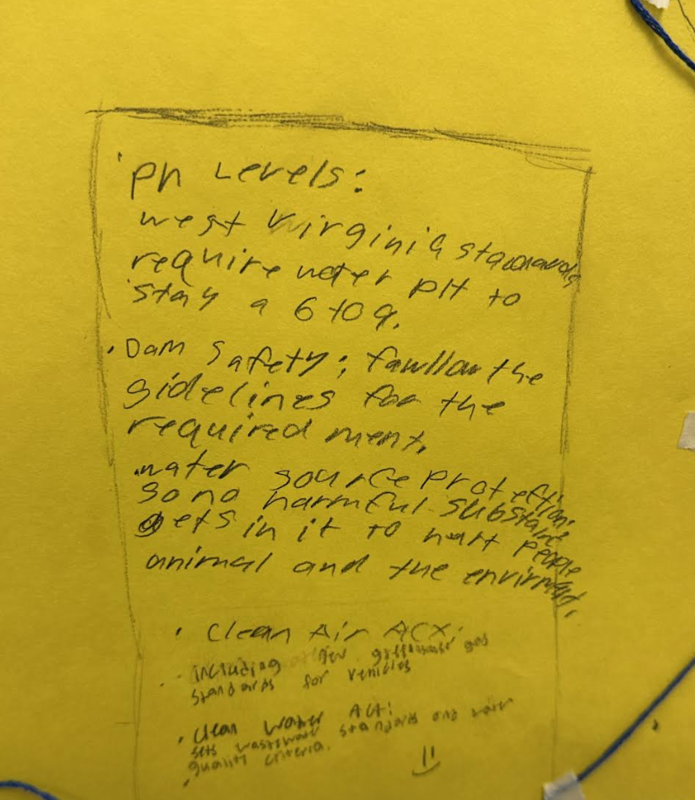 · Ph Levels:
west Virginia standards
require water pH to
stay a 6 to 9.
· Dam Safety: fawllow the
gidelines for the
required ment.
· water source protection:
so no harmful substance
gets in it to hurt people
animal and the envirment.
· Clean Air ACt:
including new greenhouse gas
standards for vehicles
· Clean Water Act:
sets wastewater standards and water
quality criteria.